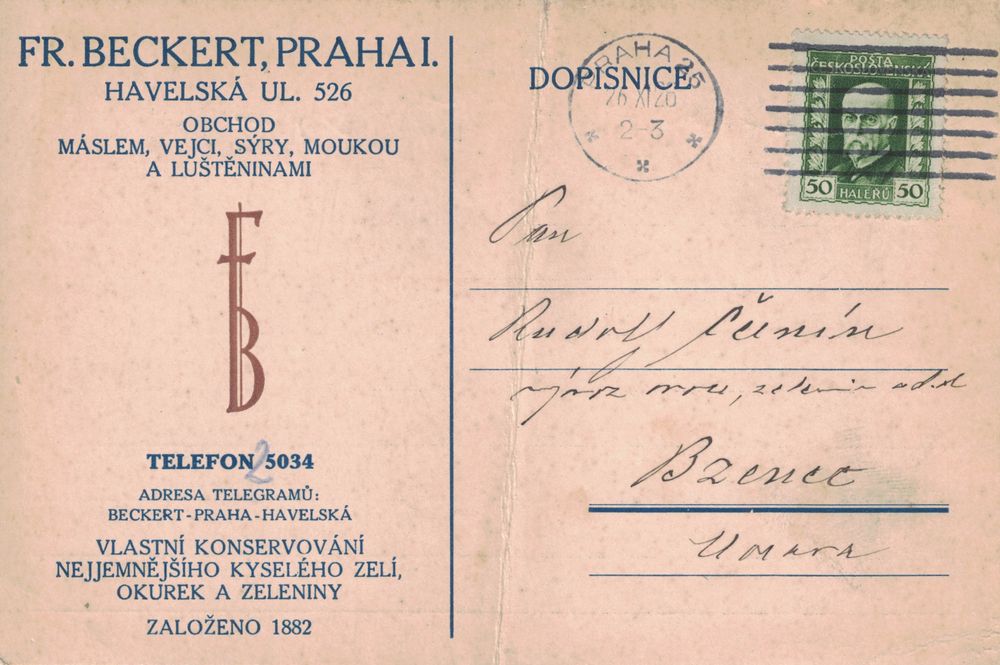 FR. BECKERT, PRAHA I.
HAVELSKÁ UL. 526
OBCHOD
MÁSLEM, VEJCI, SÝRY, MOUKOU
A LUŠTĚNINAMI
FB
TELEFON 25034
ADRESA TELEGRAMŮ:
BECKERT-PRAHA-HAVELSKÁ
VLASTNÍ KONSERVOVÁNÍ
NEJJEMNĚJŠÍHO KYSELÉHO ZELÍ,
OKUREK A ZELENINY
ZALOŽENO 1882
DOPISNICE
PRAHA 25
26 XI 26
2-3
POŠTA
ČESKOSLOVENSKÁ
50 HALÉŘŮ 50
Pan
Rudolf
vývoz ovoce, zelenin a t. d.
Bzenec
Morava